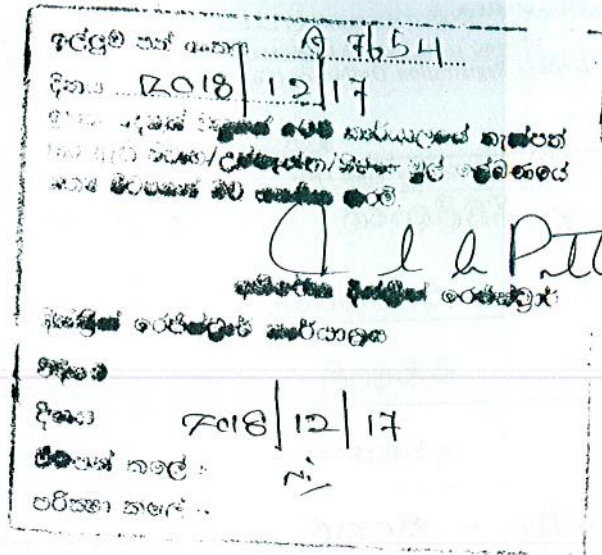 ඉල්ලුම් පත් අංකය 7654
දිනය 2018/12/17
මෙම කාර්යාලයේ තැන්පත්
විවාහ/උප්පැන්න/මරණ මුල් ලේඛණයේ
බව සහතික කරමි.
අතිරේක දිස්ත්‍රික් රෙජිස්ට්‍රාර්
දිස්ත්‍රික් රෙජිස්ට්‍රාර් කාර්යාලය
දිනය 2018/12/17
පිටපත් කලේ :
පරීක්ෂා කලේ :